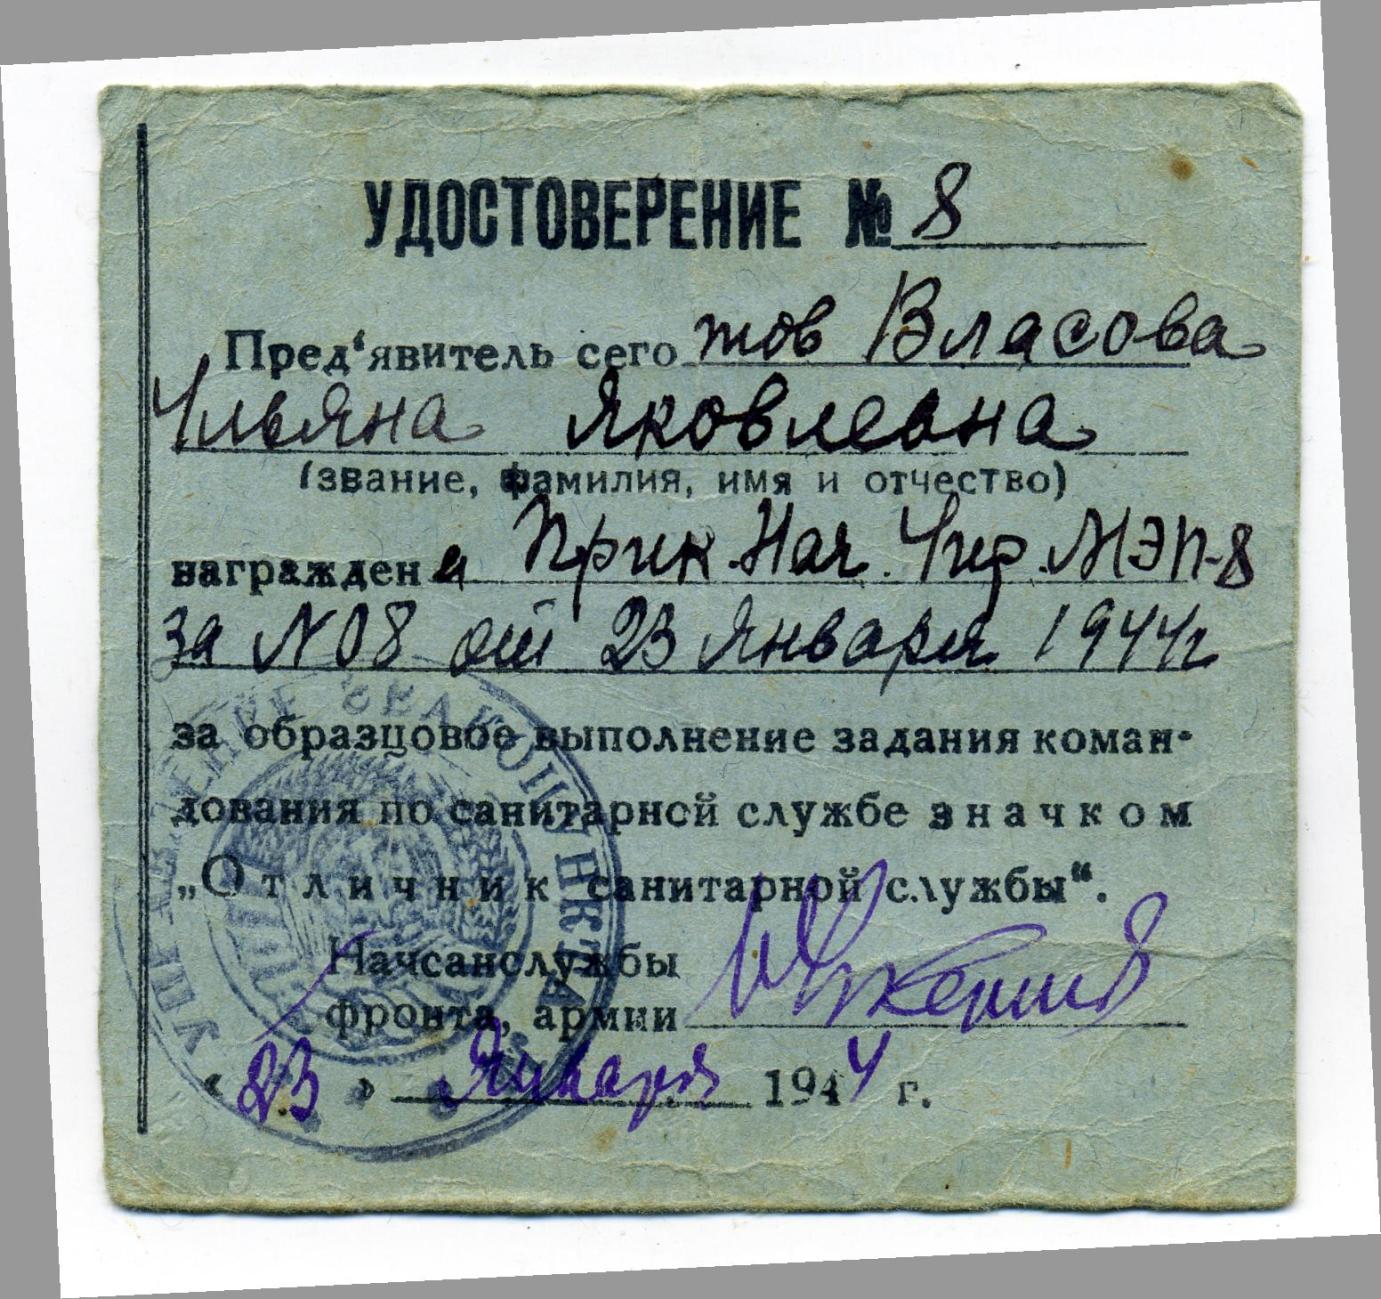 УДОСТОВЕРЕНИЕ № 8
Пред‘явитель сего тов Власова
Ульяна Яковлевна
(звание, фамилия, имя и отчество)
награжден а Прик. Нач. Упр. МЭП-8
за № 08 от 23 Января 1944 г
за образцовое выполнение задания коман-
дования по санитарной службе значком
„Отличник санитарной службы“.
Начсанслужбы
фронта, армии
„23 » Января 1944 г.